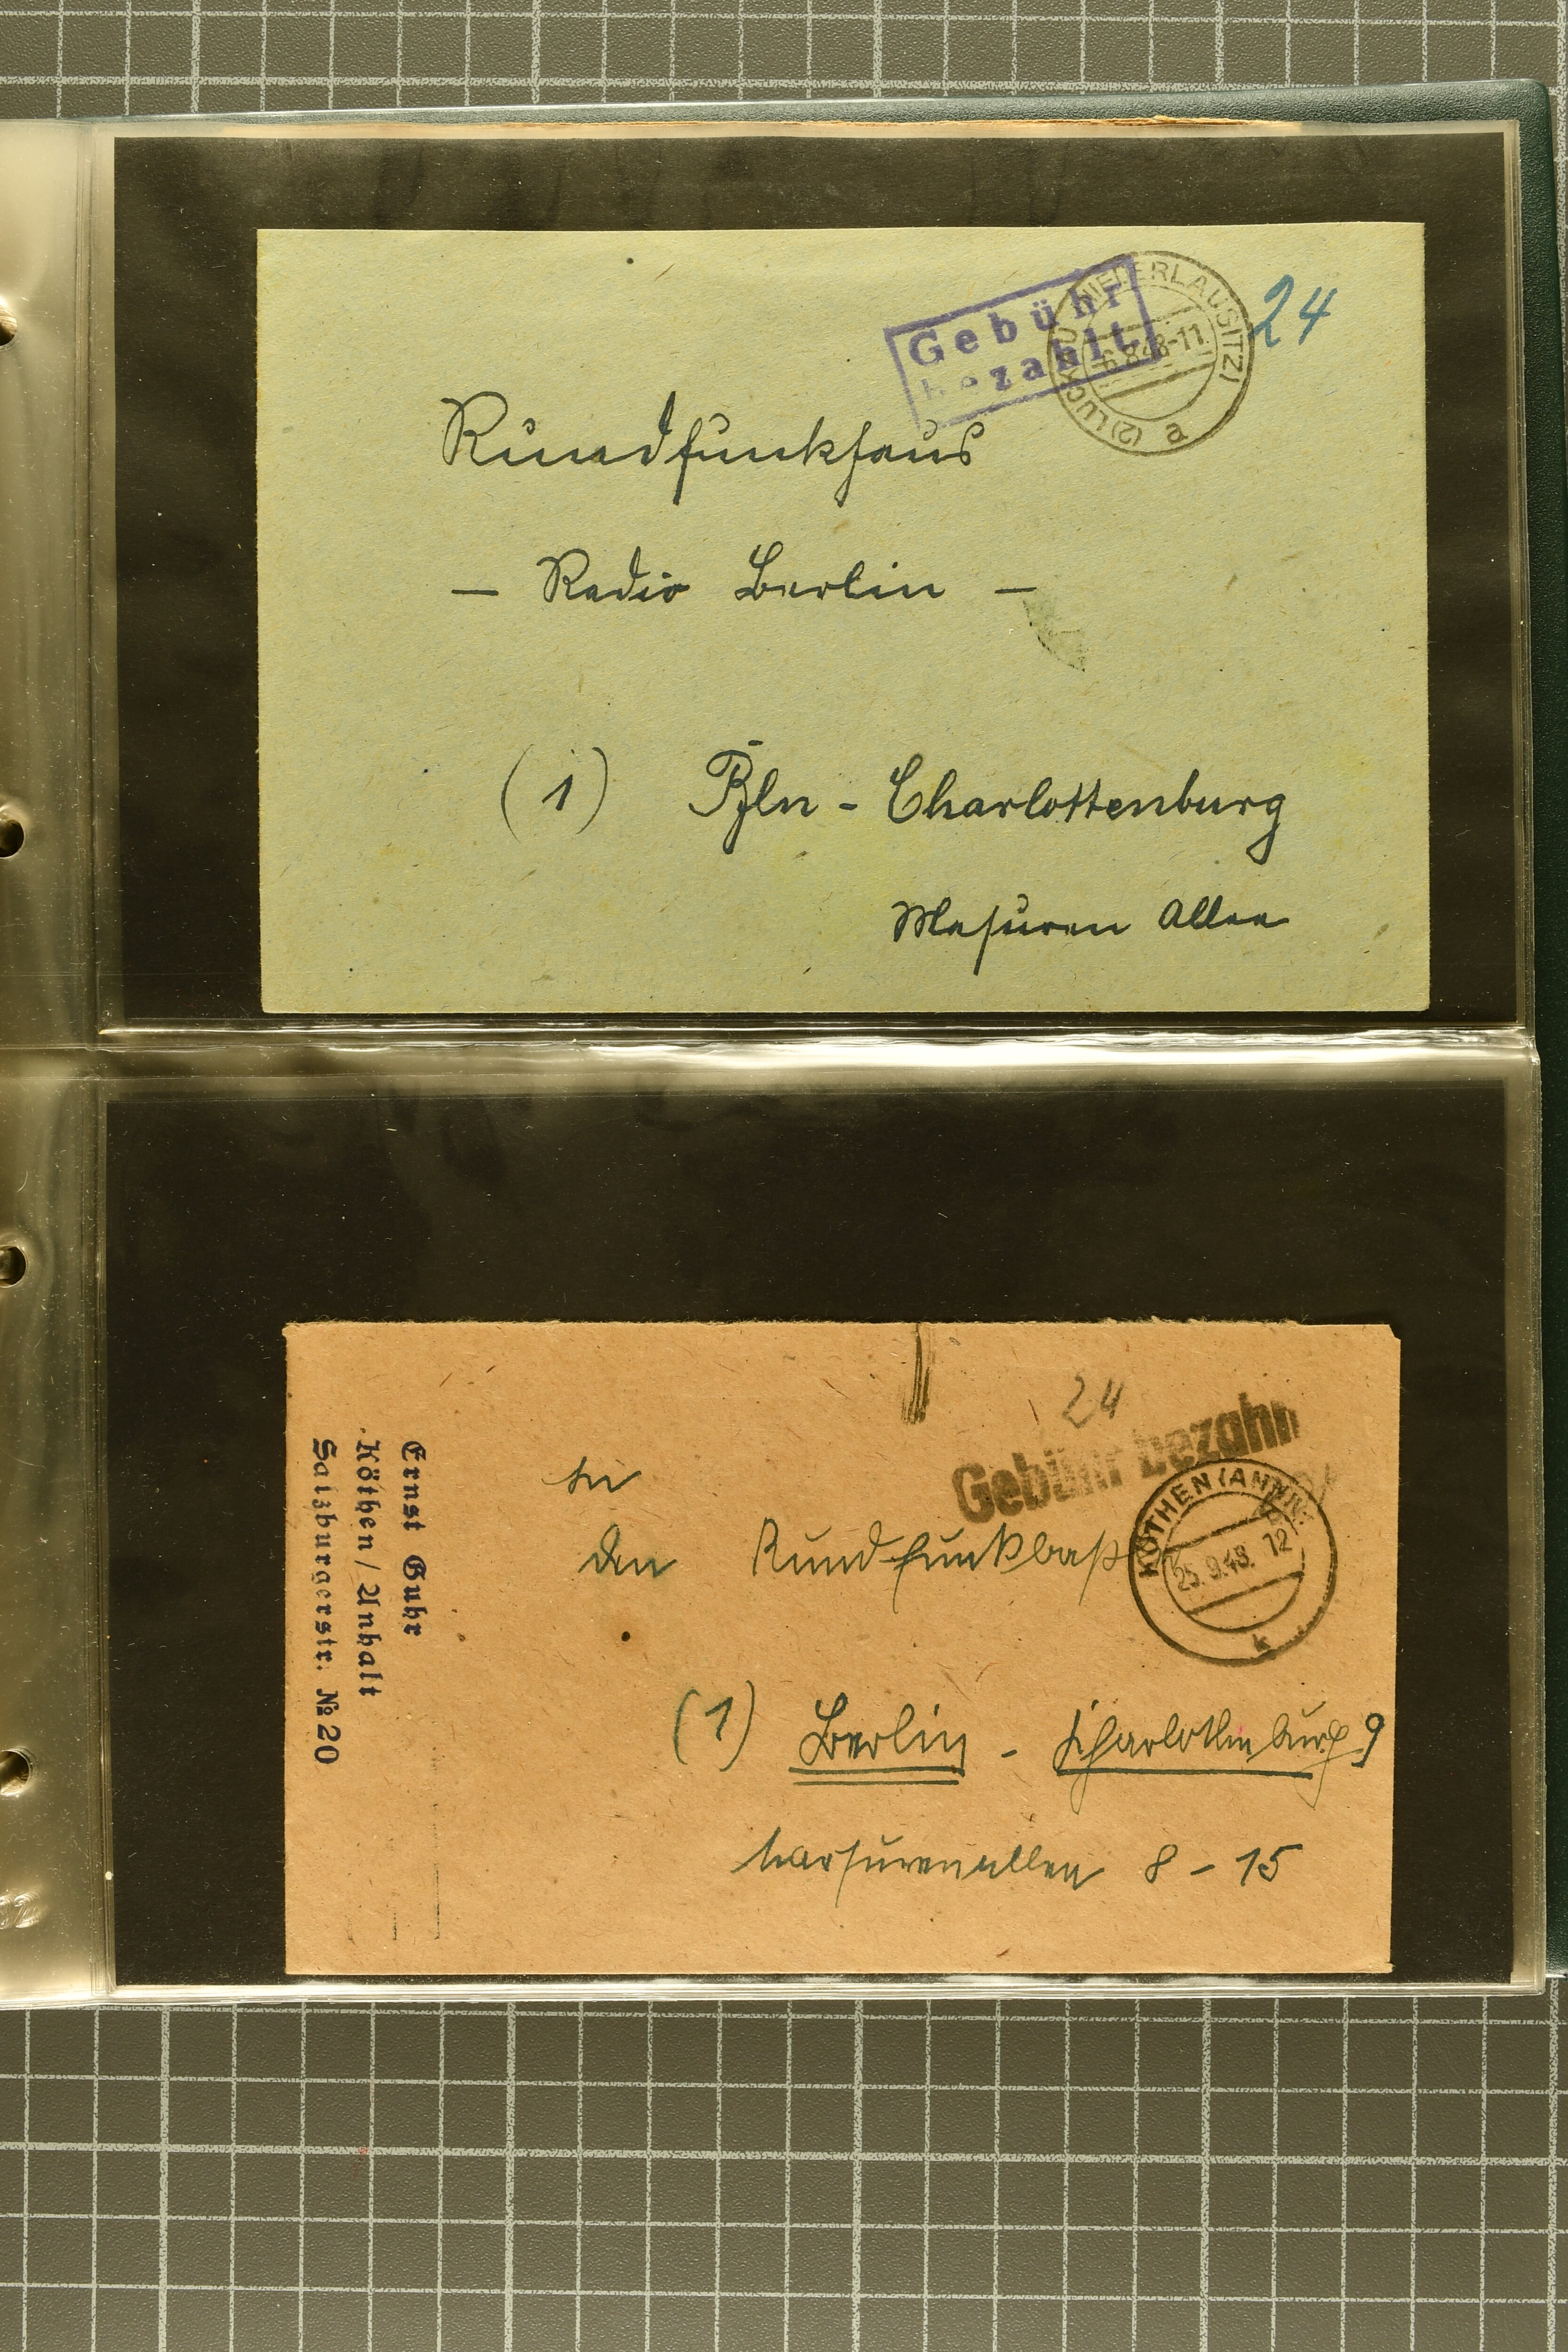 Gebühr
bezahlt
(2) LUCKAU (NIEDERLAUSITZ)
6.8.48-11
a
24
Rundfunkhaus
— Radio Berlin —
(1) Bln - Charlottenburg
Masuren Allee
24
Gebühr bezahlt
KÖTHEN (ANH
25.9.48. 12
k
An
den Rundfunkbaß
(1) Berlin - Charlottenburg 9
Masurenallee 8 - 15
Ernst Guhr
Köthen / Anhalt
Salzburgerstr. № 20